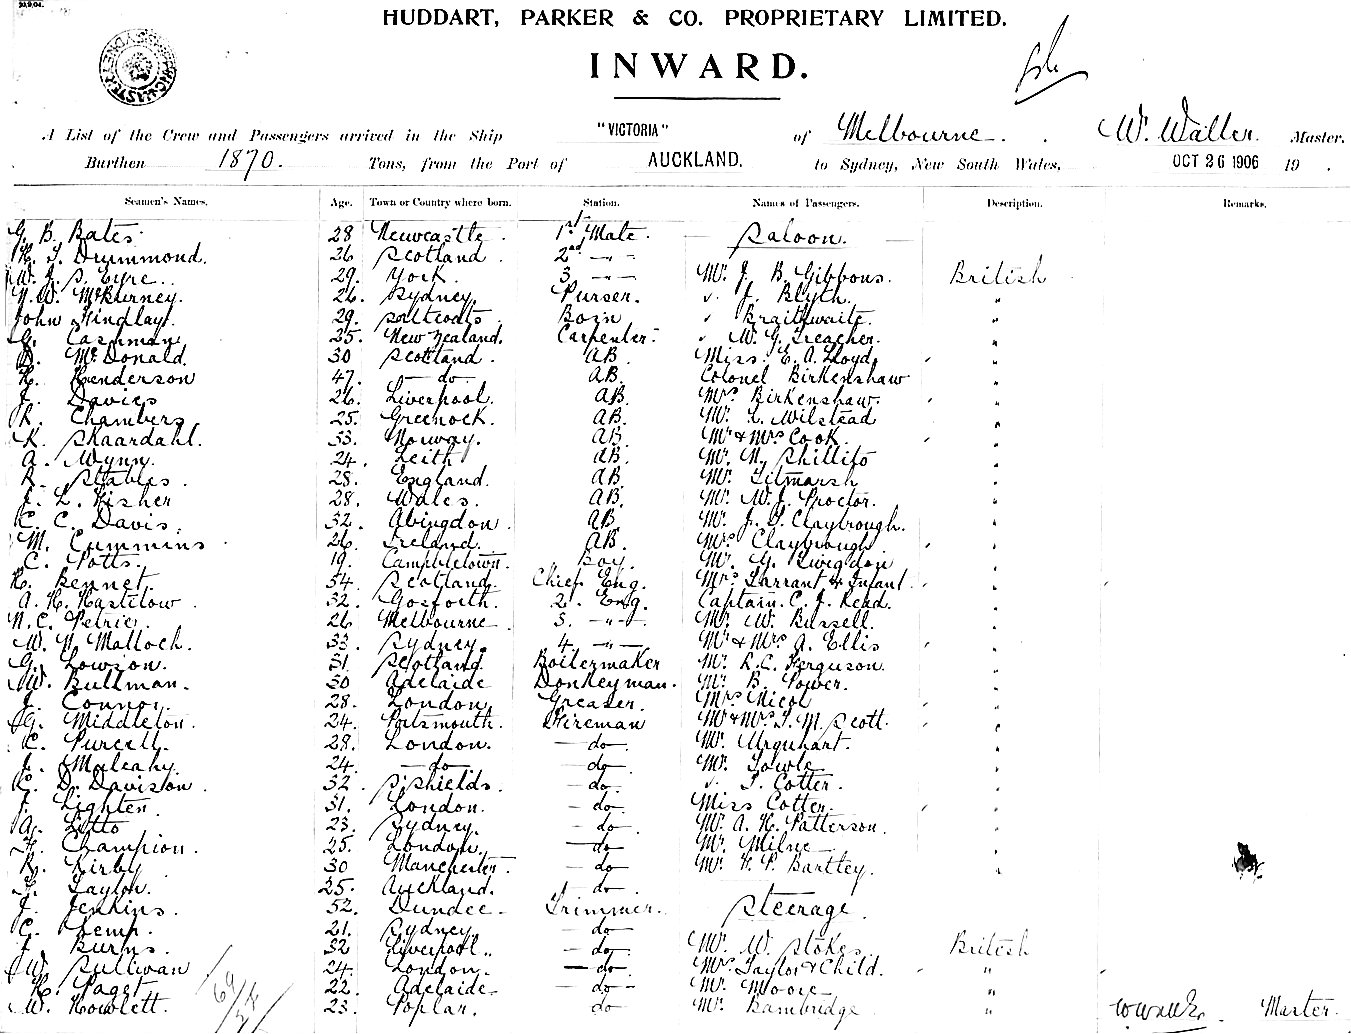 HUDDART, PARKER & CO. PROPRIETARY LIMITED.
INWARD.
A List of the Crew and Passengers arrived in the Ship "VICTORIA" of Melbourne. W. Waller. Master.
Burthen 1870. Tons, from the Port of AUCKLAND. to Sydney, New South Wales, OCT 26 1906 19 .
Seamen's Names. Age. Town or Country where born. Station. Names of Passengers. Description. Remarks.
G. B. Bates. 28 Newcastle. 1st Mate. Saloon.
Drummond. 26 Scotland. 2nd -"-
W. J. S. Eyre. 29. York. 3. -"- Mr. J. B. Gibbons. British
N. W. McBurney. 26. Sydney. Purser. " J. Blyth. "
John Findlay. 29. Saltcoats. Bosn " Braithwaite. "
G. Cashman. 25. New Zealand. Carpenter. " W. G. Treacher. "
D. McDonald. 30 Scotland. AB. Miss E. A. Lloyd. "
H. Henderson 47. -do- AB. Colonel Birkenshaw "
J. Davies 26. Liverpool. AB. Mrs Birkenshaw. "
R. Chambers. 25. Greenock. AB. Mr. L. Wilstead "
K. Skaardahl. 33. Norway. AB. Mr & Mrs Cook. "
A. Wynn. 24. Leith AB. Mr. N. Phillips "
R. Stables. 28. England. AB. Mr. Titmarsh "
J. L. Fisher 28. Wales. AB. Mr. W. J. Proctor. "
C. C. Davis. 32. Abingdon. AB. Mr. J. S. Claybrough. "
M. Cummins 26. Ireland. AB. Mrs Claybrough. "
C. Potts. 19. Campbletown. Boy. Mr. G. "
R. Bennet. 54. Scotland. Chief Eng. Mrs Tarrant & Infant. "
A. H. Hastilow 32. Gosforth. 2. Eng. Captain C. J. Read. "
N. C. Petrie. 26 Melbourne 3. -"- Mr. W. Bussell. "
W. N. Malloch. 33. Sydney. 4. -"- Mr & Mrs A. Ellis "
G. Lowson. 31. Scotland. Boilermaker Mr. R. C. Ferguson. "
W. Bullman. 30 Adelaide Donkeyman. Mr. B. Power. "
J. Connor. 28. London. Greaser. Mrs Nicol "
G. Middleton. 24. Portsmouth. Fireman Mr & Mrs T. M. Scott. "
C. Purcell. 28. London. -do- Mr. Urquhart. "
J. Muleahy. 24. -do- -do- Mr. Towle. "
R. D. Davison. 32 S. Shields. -do- " T. Cotter. "
J. Lighten. 31. London. -do- Miss Cotter. "
A. Litto 23. Sydney. -do- Mr. A. H. Patterson. "
F. Champion. 25. London. -do- Mr. Milne "
R. Kirby 30 Manchester. -do- Mr. F. P. Bartley. "
Taylor. 25. Auckland. -do-
J. Jenkins. 52. Dundee. Trimmer. Steerage.
C. Kemp. 21. Sydney. -do-
J. Burns. 32 Liverpool. -do- Mr. W. Stokes. British
W. Sullivan 24. London. -do- Mrs Taylor & Child. "
H. Paget 22. Adelaide -do- Mr. Moore "
W. Howlett. 23. Poplar. do Mr. Bambridge " Master.